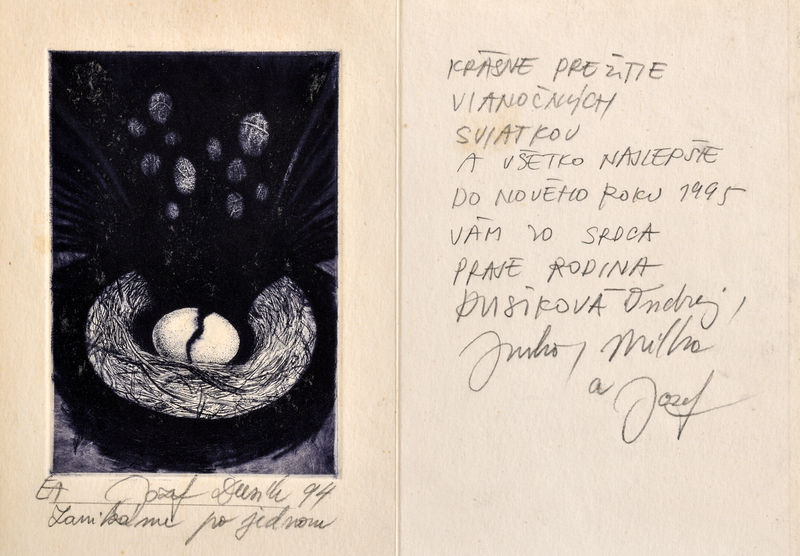 EA Jozef Dusík 94
Zanikáme po jednom
KRÁSNE PREŽITIE
VIANOČNÝCH
SVIATKOV
A VŠETKO NAJLEPŠIE
DO NOVÉHO ROKU 1995
VÁM ZO SRDCA
PRAJE RODINA
DUSÍKOVÁ Ondrej,
Milka
a Jozef